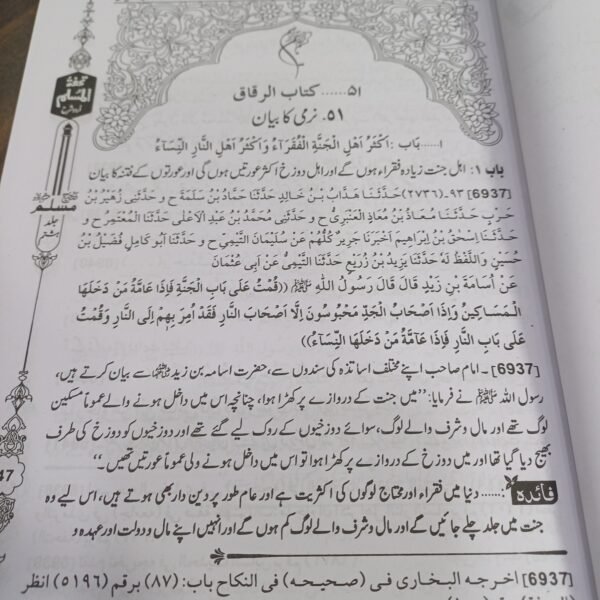 تحفۃ
المسلم
مسلم
جلد
ہشتم
۵۱...... كتاب الرقاق
۵۱. نرمی کا بیان
۱......بَاب :اَكْثَرُ اَهْلِ الْجَنَّةِ الْفُقَرَآءُ وَاَكْثَرُ اَهْلِ النَّارِ النِّسَآءُ
باب ۱: اہل جنت زیادہ فقراء ہوں گے اور اہل دوزخ اکثر عورتیں ہوں گی اور عورتوں کے فتنہ کا بیان
[6937] ۹۳ـ(۲۷۳۶)حَدَّثَنَا هَدَّابُ بْنُ خَالِدٍ حَدَّثَنَا حَمَّادُ بْنُ سَلَمَةَ ح و حَدَّثَنِی زُهَيْرُ بْنُ
حَرْبٍ حَدَّثَنَا مُعَاذُ بْنُ مُعَاذِ الْعَنْبَرِیُّ ح و حَدَّثَنِی مُحَمَّدُ بْنُ عَبْدِ الْاَعْلٰی حَدَّثَنَا الْمُعْتَمِرُ ح و
حَدَّثَنَا اِسْحٰقُ بْنُ اِبْرَاهِيمَ اَخْبَرَنَا جَرِيرٌ كُلُّهُمْ عَنْ سُلَيْمَانَ التَّيْمِیِّ ح و حَدَّثَنَا اَبُو كَامِلٍ فُضَيْلُ بْنُ
حُسَيْنٍ وَاللَّفْظُ لَهُ حَدَّثَنَا يَزِيدُ بْنُ زُرَيْعٍ حَدَّثَنَا التَّيْمِیُّ عَنْ اَبِی عُثْمَانَ
عَنْ اُسَامَةَ بْنِ زَيْدٍ قَالَ قَالَ رَسُولُ اللّٰهِ ﷺ ((قُمْتُ عَلٰی بَابِ الْجَنَّةِ فَاِذَا عَامَّةُ مَنْ دَخَلَهَا
الْمَسَاكِينُ وَاِذَا اَصْحَابُ الْجَدِّ مَحْبُوسُونَ اِلَّا اَصْحَابَ النَّارِ فَقَدْ اُمِرَ بِهِمْ اِلَی النَّارِ وَقُمْتُ
عَلٰی بَابِ النَّارِ فَاِذَا عَآمَّةُ مَنْ دَخَلَهَا النِّسَآءُ))
[6937]۔ امام صاحب اپنے مختلف اساتذہ کی سندوں سے، حضرت اسامہ بن زید سے بیان کرتے ہیں،
رسول اللہ ﷺ نے فرمایا: ’’میں جنت کے دروازے پر کھڑا ہوا، چنانچہ اس میں داخل ہونے والے عموماً مسکین
لوگ تھے اور مال و شرف والے لوگ، سوائے دوزخیوں کے روک لیے گئے تھے اور دوزخیوں کو دوزخ کی طرف
بھیج دیا گیا تھا اور میں دوزخ کے دروازے پر کھڑا ہوا تو اس میں داخل ہونے ولی عموماً عورتیں تھیں۔‘‘
فائدہ:...... دنیا میں فقراء اور محتاج لوگوں کی اکثریت ہے اور عام طور پر دین دار بھی یہ ہوتے ہیں، اس لیے وہ
جنت میں جلد چلے جائیں گے اور مال و شرف والے لوگ کم ہوں گے اور انہیں اپنے مال و دولت اور عہدہ و
47
[6937] اخرجه البخاری فی (صحیحه) فی النکاح باب: (۸۷) برقم (۵۱۹۶) انظر